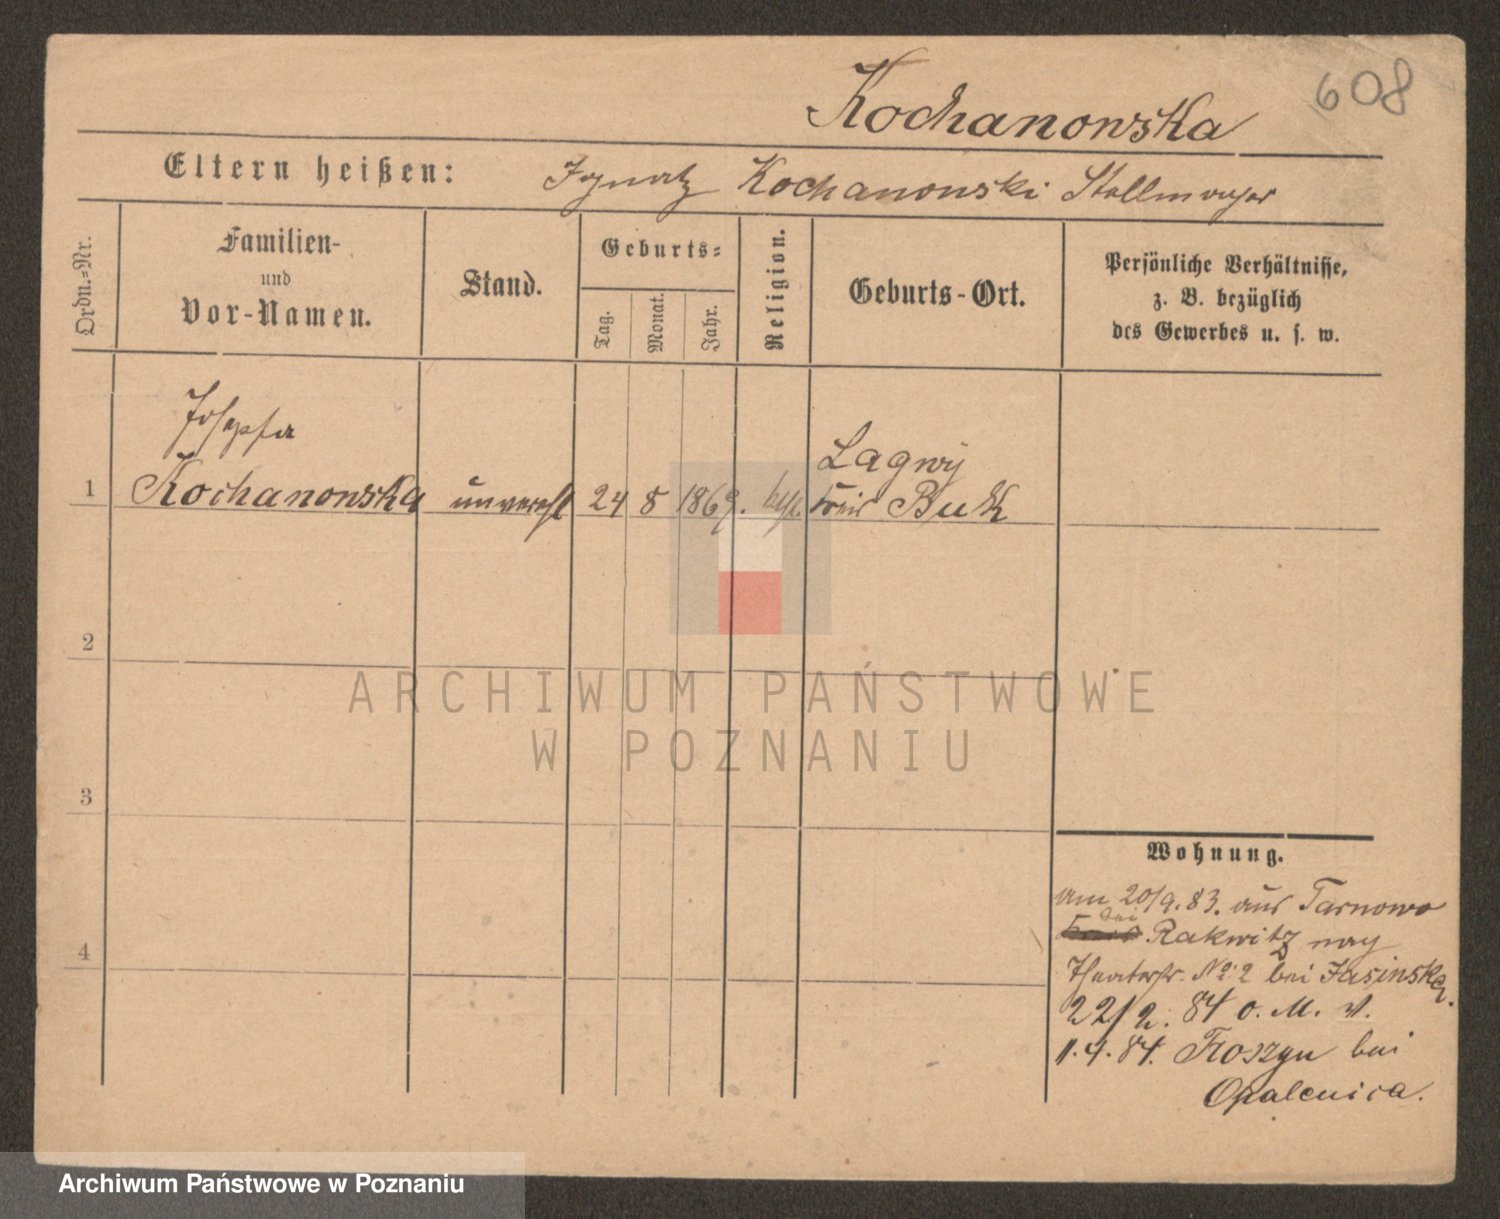 608
Kochanowska
Eltern heißen: Ignatz Kochanowski Stellmacher
Ordn.=Nr.
Familien-
und
Vor-Namen.
Stand.
Geburts=
Tag.
Monat.
Jahr.
Religion.
Geburts-Ort.
Persönliche Verhältnisse,
z. B. bezüglich
des Gewerbes u. s. w.
Josepha
Lagwy
1 Kochanowska unvereh 24 8 1869. kath. Kreis Buk
2
ARCHIWUM PAŃSTWOWE
W POZNANIU
3
Wohnung.
am 20/9. 83. aus Tarnowo
bei
Rakwitz nach
4
Theaterstr. No. 2 bei Jasinska.
22/2. 84 o. M. V.
1.4.84. Troszyn bei
Opalenica.
Archiwum Państwowe w Poznaniu